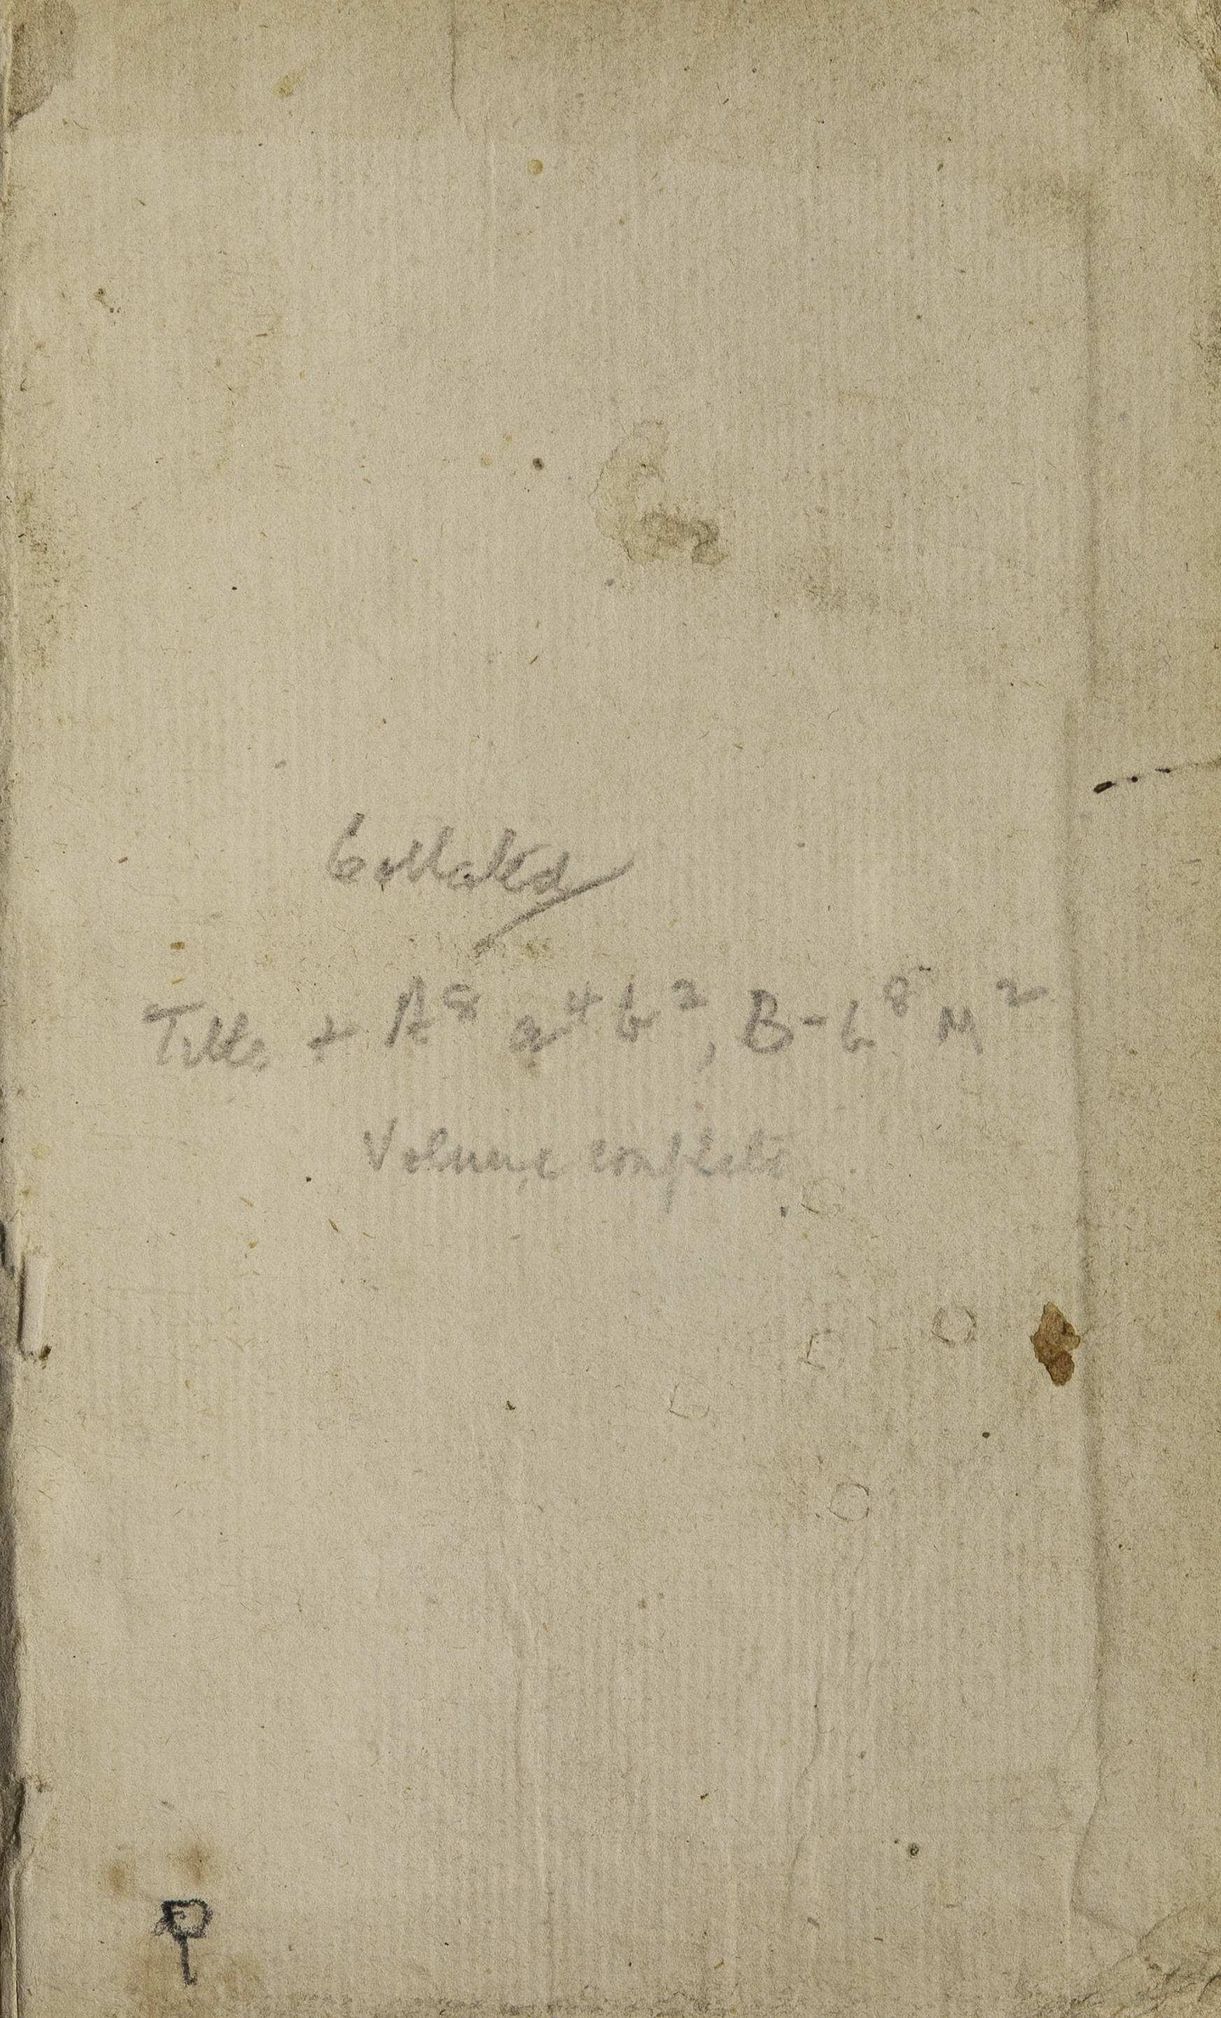 Collated
Title + A⁸ a⁴ b², B-L⁸ M²
Volume complete